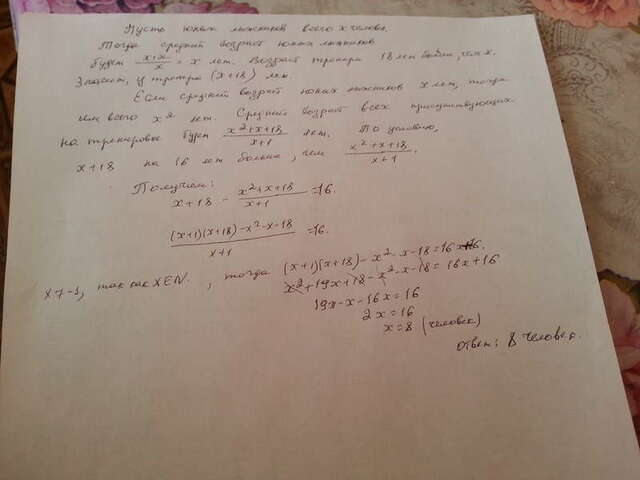 Пусть юных лыжников всего x человек.
Тогда средний возраст юных лыжников
будет (x·x)/x = x лет. Возраст тренера 18 лет более, чем x.
Значит, у тренера (x+18) лет.
Если средний возраст юных лыжников x лет, тогда
им всего x² лет. Средний возраст всех присутствующих
на тренировке будет (x²+x+18)/(x+1) лет. По условию,
x+18 на 16 лет больше, чем (x²+x+18)/(x+1).
Получаем:
x+18 - (x²+x+18)/(x+1) = 16.
((x+1)(x+18)-x²-x-18)/(x+1) = 16.
x≠-1, так как x∈N., тогда (x+1)(x+18)-x²-x-18=16x+16.
x²+19x+18-x²-x-18=16x+16
19x-x-16x=16
2x=16
x=8 (человек)
Ответ: 8 человек.